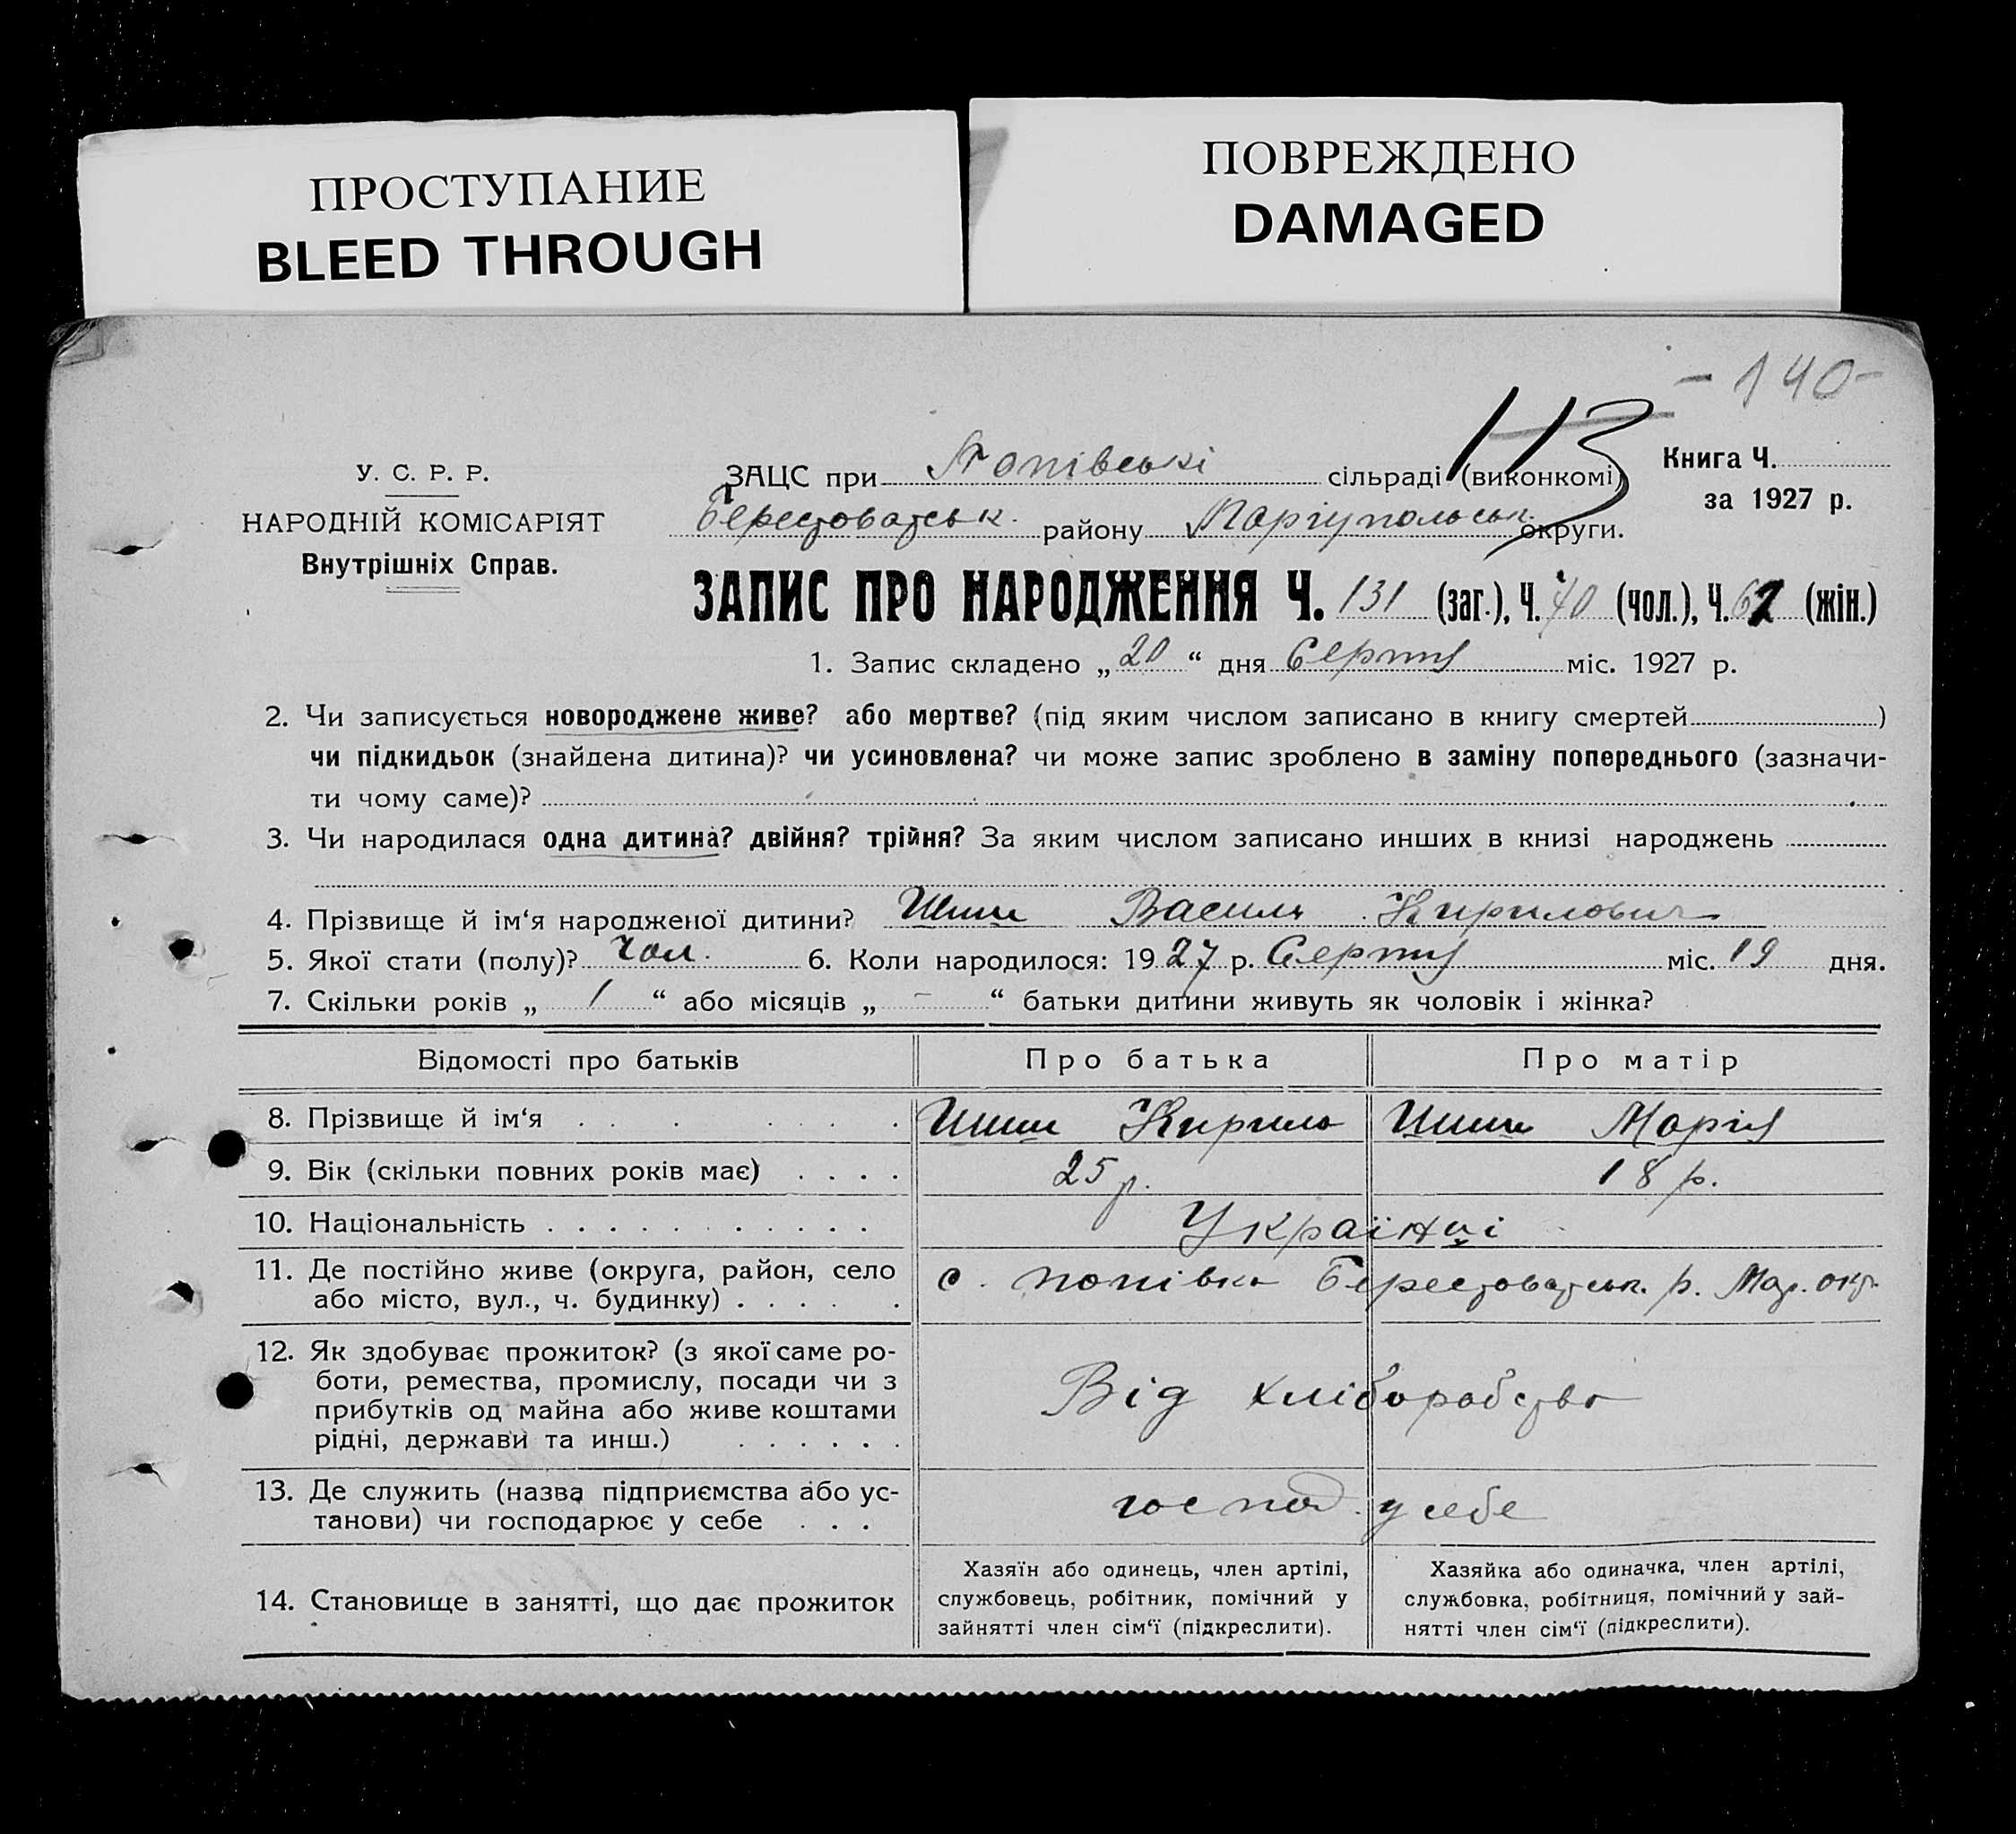 ПРОСТУПАНИЕ
BLEED THROUGH
ПОВРЕЖДЕНО
DAMAGED
- 140 -
113
У. С. Р. Р.
НАРОДНІЙ КОМІСАРІЯТ
Внутрішніх Справ.
ЗАЦС при Попівські сільраді (виконкомі)
Берестоватськ. району Маріупольськ. округи.
Книга Ч.
за 1927 р.
ЗАПИС ПРО НАРОДЖЕННЯ Ч. 131 (заг.), Ч. 70 (чол.), Ч. (жін.)
1. Запис складено „ 20 “ дня Серпня міс. 1927 р.
2. Чи записується новороджене живе? або мертве? (під яким числом записано в книгу смертей )
чи підкидьок (знайдена дитина)? чи усиновлена? чи може запис зроблено в заміну попереднього (зазначи-
ти чому саме)?
3. Чи народилася одна дитина? двійня? трійня? За яким числом записано инших в книзі народжень
4. Прізвище й ім‘я народженої дитини? Василь Кирилович
5. Якої стати (полу)? чол. 6. Коли народилося: 1927 р. Серпня міс. 19 дня.
7. Скільки років „ 1 “ або місяців „ - “ батьки дитини живуть як чоловік і жінка?
Відомості про батьків Про батька Про матір
8. Прізвище й ім‘я Кирило Марія
9. Вік (скільки повних років має) 25 р. 18 р.
10. Національність Українці
11. Де постійно живе (округа, район, село
або місто, вул., ч. будинку)
с. Попівка Берестоватськ. р. Мар. окр.
12. Як здобуває прожиток? (з якої саме ро-
боти, ремества, промислу, посади чи з
прибутків од майна або живе коштами
рідні, держави та инш.)
Від хліборобства
13. Де служить (назва підприємства або ус-
танови) чи господарює у себе
господ. у себе
14. Становище в занятті, що дає прожиток
Хазяїн або одинець, член артілі,
службовець, робітник, помічний у
зайнятті член сім‘ї (підкреслити).
Хазяйка або одиначка, член артілі,
службовка, робітниця, помічний у зай-
нятті член сім‘ї (підкреслити).